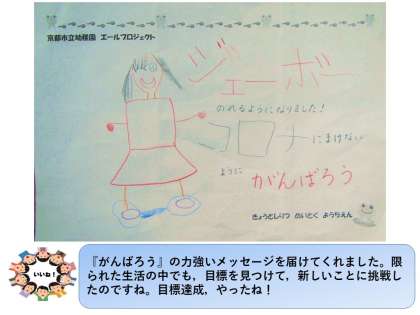 京都市立幼稚園 エールプロジェクト
ジェーボー
のれるようになりました！
コロナにまけない
ように
がんばろう
きょうとしりつ めいとく ようちえん
いいね！
『がんばろう』の力強いメッセージを届けてくれました。限
られた生活の中でも，目標を見つけて，新しいことに挑戦し
たのですね。目標達成，やったね！